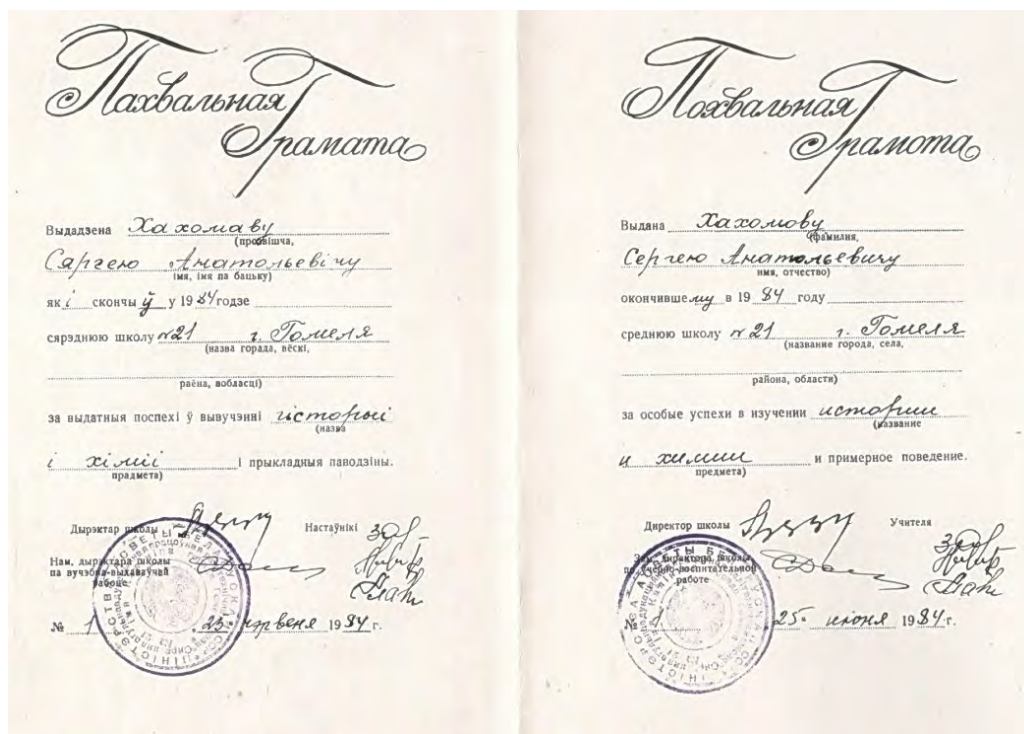 Пахвальная
Грамата
Выдадзена Хахомаву
(прозвішча,
Сяргею Анатольевічу
імя, імя па бацьку)
які скончыў у 1984 годзе
сярэднюю школу №21 г. Гомеля
(назва горада, вёскі,
раёна, вобласці)
за выдатныя поспехі ў вывучэнні гісторыі
(назва
і хіміі і прыкладныя паводзіны.
прадмета)
Дырэктар школы Настаўнікі
Нам. дырэктара школы
па вучэбна-выхаваўчай
рабоце
№ 1 25 чэрвеня 1984 г.
Похвальная
Грамота
Выдана Хахомову
(фамилия,
Сергею Анатольевичу
имя, отчество)
окончившему в 1984 году
среднюю школу №21 г. Гомеля
(название города, села,
района, области)
за особые успехи в изучении истории
(название
и химии и примерное поведение.
предмета)
Директор школы Учителя
Зам. директора школы
по учебно-воспитательной
работе
№ 25 июня 1984 г.